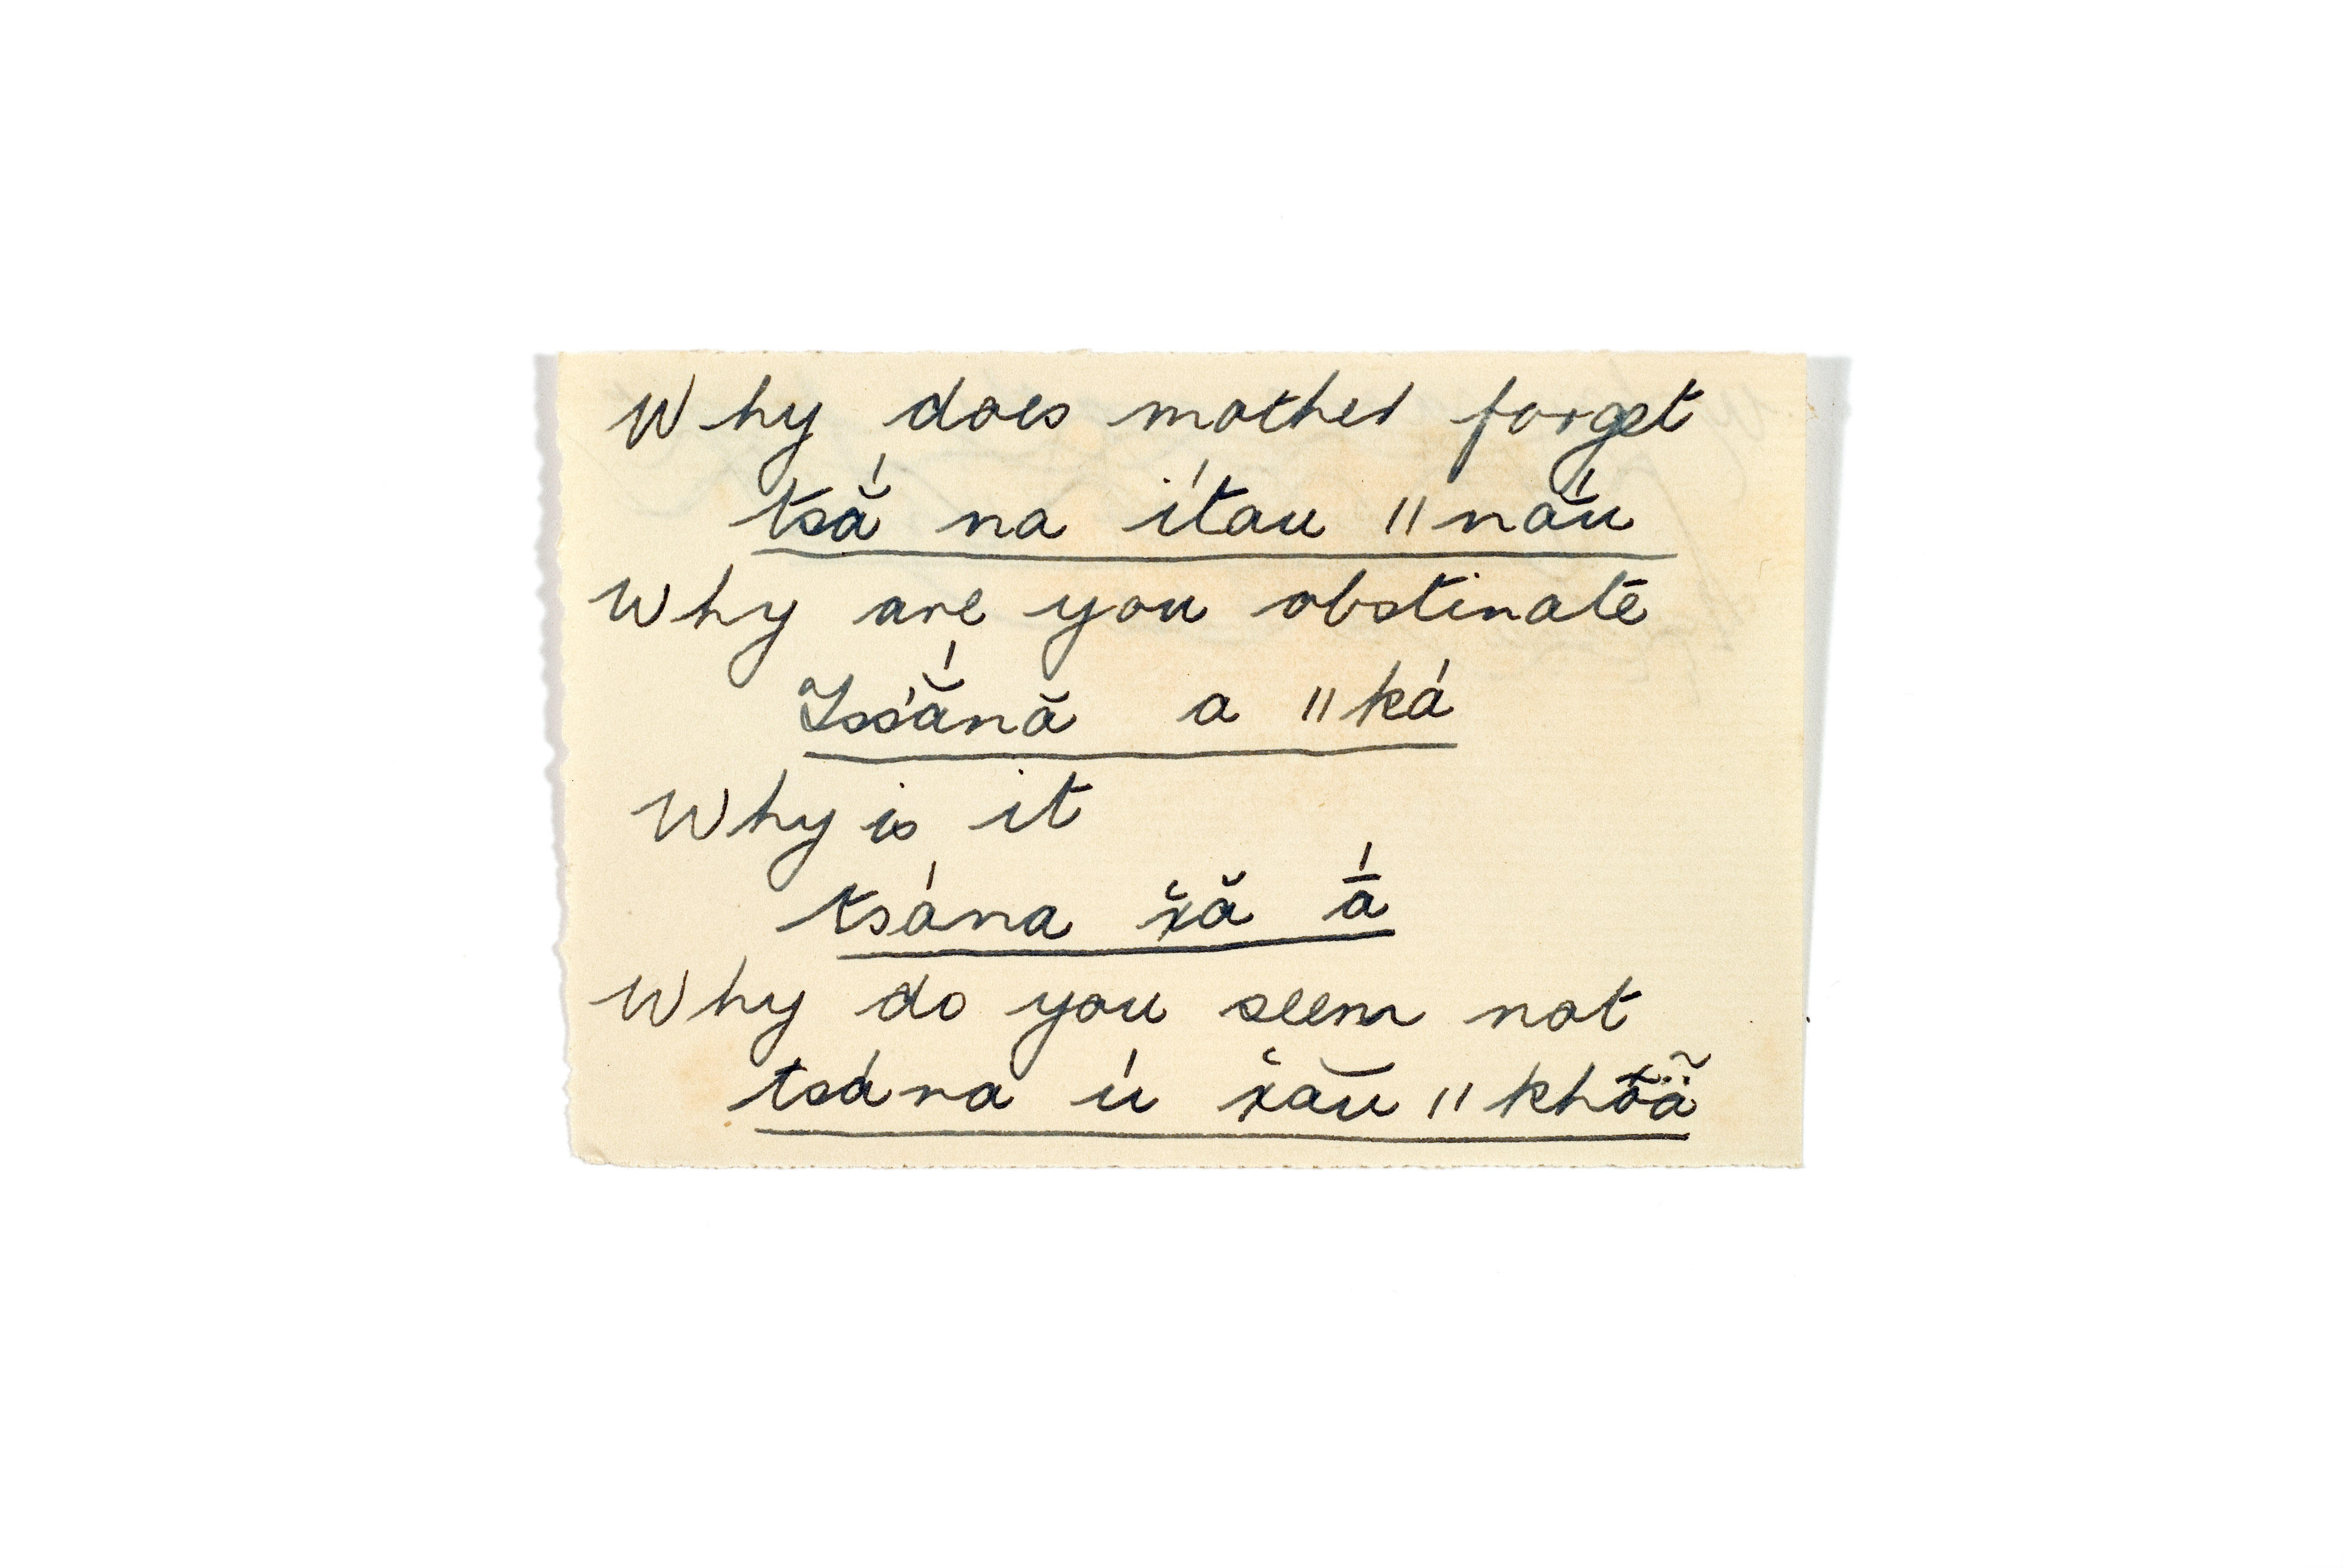 Why does mother forget
tsắ na ítau ǁnā́u
Why are you obstinate
Tssắnă a ǁká
Why is it
tsána x̌ă ā́
Why do you seem not
tsána ú x̌ău ǁkhõä̃